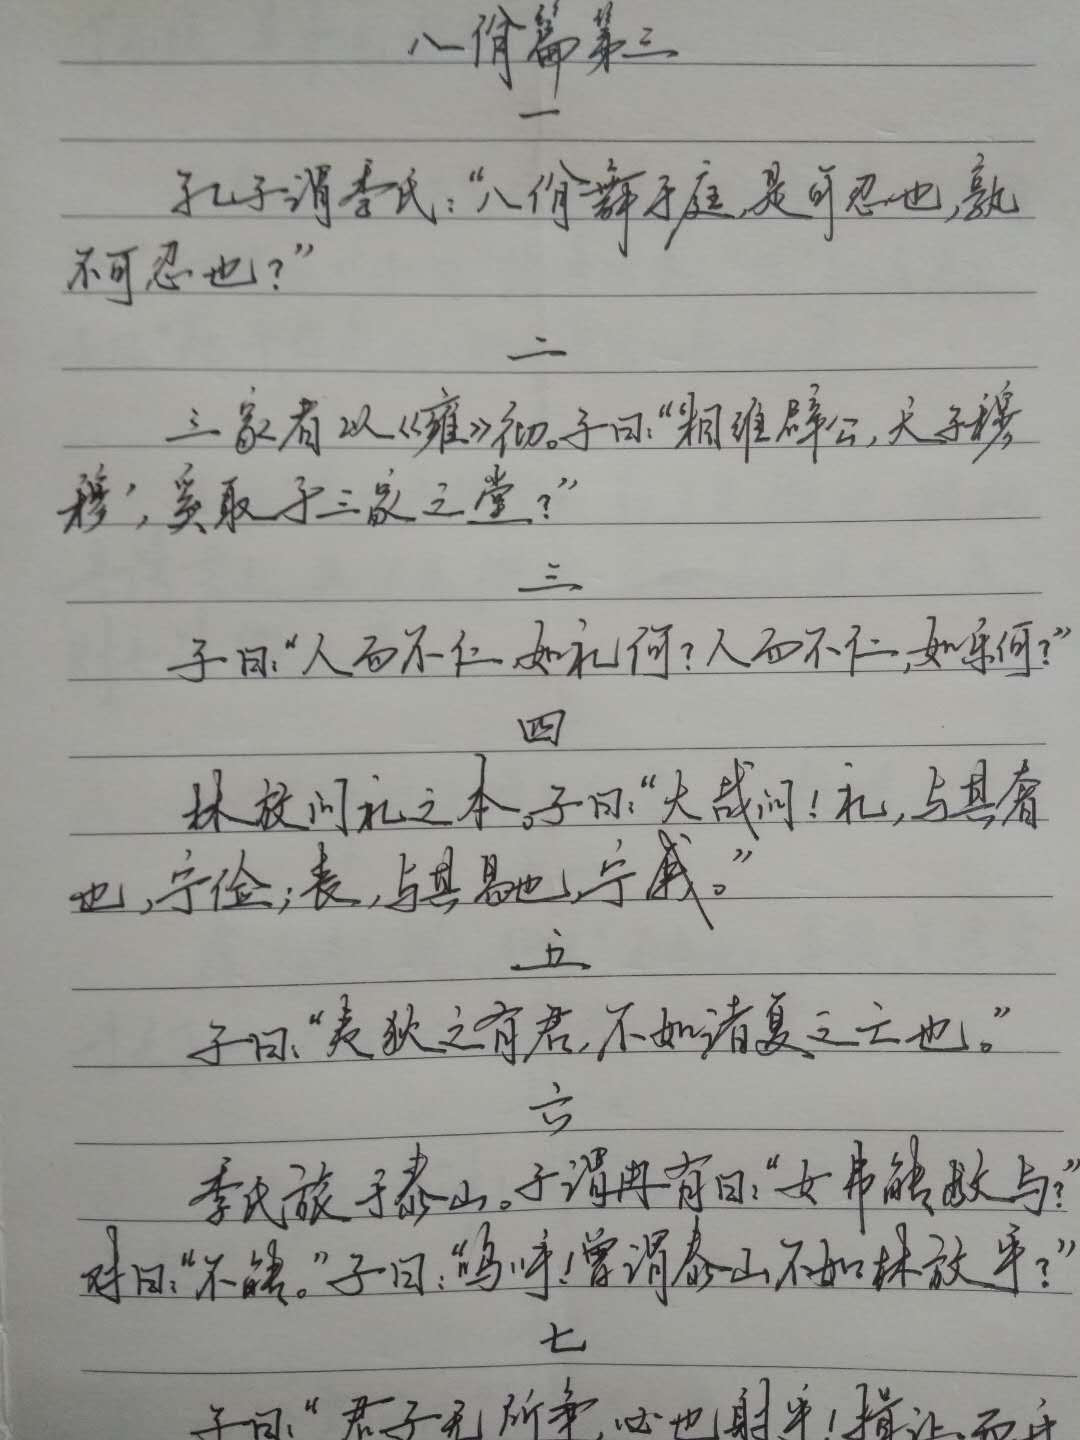 八佾篇第三
一
孔子谓季氏：“八佾舞于庭，是可忍也，孰
不可忍也？”
二
三家者以《雍》彻。子曰：“‘相维辟公，天子穆
穆’，奚取于三家之堂？”
三
子曰：“人而不仁，如礼何？人而不仁，如乐何？”
四
林放问礼之本。子曰：“大哉问！礼，与其奢
也，宁俭；丧，与其易也，宁戚。”
五
子曰：“夷狄之有君，不如诸夏之亡也。”
六
季氏旅于泰山。子谓冉有曰：“女弗能救与？”
对曰：“不能。”子曰：“呜呼！曾谓泰山不如林放乎？”
七
子曰：“君子无所争，必也射乎！揖让而升